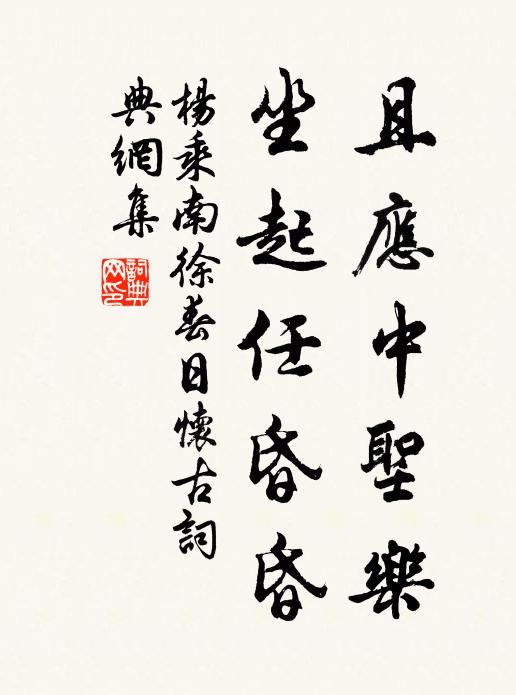 且應中聖樂
坐起任昏昏
楊乘南徐春日懷古詞
典網集
詞典
网印